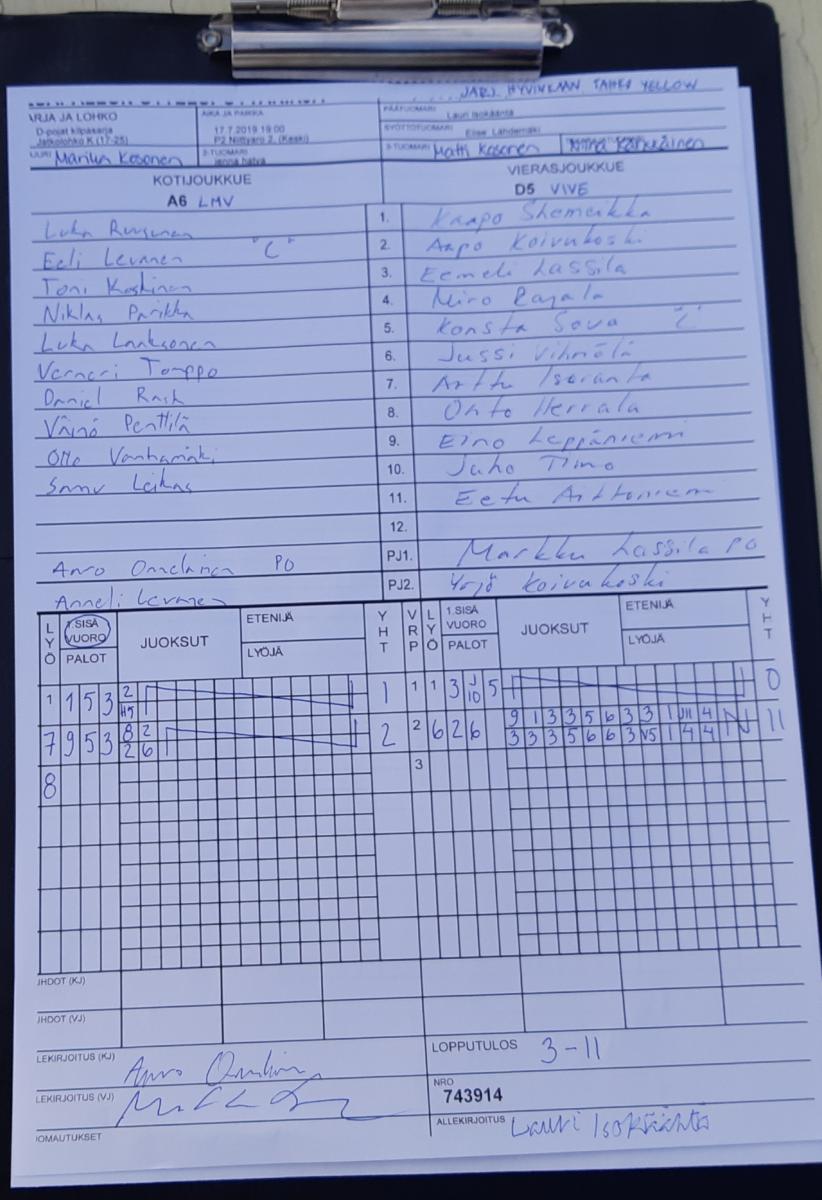 JÄRJ. HYVINKÄÄN TAHKO YELLOW
ARJA JA LOHKO
D-pojat kilpasarja
Jatkolohko K (17-25)
AIKA JA PAIKKA
17.7.2019 19:00
P2 Niittyaro 2. (Keski)
PÄÄTUOMARI
Lauri Isokääntä
SYÖTTÖTUOMARI
Elise Lähdemäki
URI Marilyn Kosonen
2-TUOMARI
3-TUOMARI Matti Kosonen
KOTIJOUKKUE
VIERASJOUKKUE
A6 LMV
D5 VIVE
Luka Ruusunen 1. Kaapo Shemeikka
Eeli Levanen "C" 2. Aapo Koivukoski
Toni Koskinen 3. Eemeli Lassila
Niklas Parikka 4. Miro Rajala
Luka Laaksonen 5. Konsta Sova "C"
Verneri Tomppo 6. Jussi Vihmölä
Daniel Rask 7. Arttu Isoranta
Väinö Penttilä 8. Onto Herrala
Otto Vanhamäki 9. Eino Leppäniemi
Samu Leikas 10. Juho Timo
11. Eetu
12.
Arvo PO PJ1. Markku Lassila PO
Anneli Levanen PJ2. Yrjö Koivukoski
LYÖ 1.SISÄ VUORO PALOT JUOKSUT ETENIJÄ LYÖJÄ YHT VRP LYÖ 1.SISÄ VUORO PALOT JUOKSUT ETENIJÄ LYÖJÄ YHT
1 1 5 3 2 1 1 1 3 J 5 0
H5 10
7 9 5 3 8 2 2 2 6 2 6 9 1 3 3 5 6 3 3 1 4 11
2 6 3 3 3 5 6 6 3 V5 1 4 4
8 3
JHDOT (KJ)
JHDOT (VJ)
LEKIRJOITUS (KJ)
LOPPUTULOS 3-11
LEKIRJOITUS (VJ)
NRO
743914
IOMAUTUKSET
ALLEKIRJOITUS Lauri Isokääntä